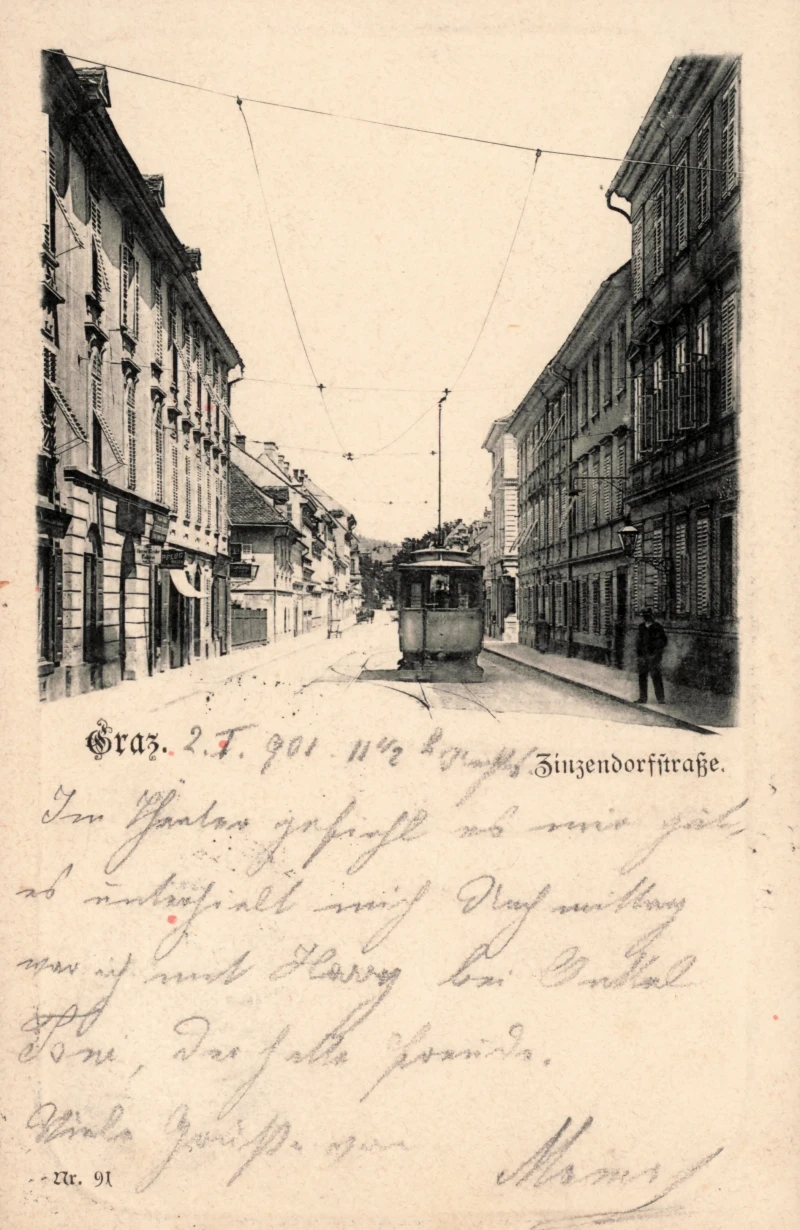 Graz. 2. I. 901 11 1/2 h Nachts
Zinzendorfstraße.
Im Theater gefiehl es mir gut,
es unterhielt mich Nachmittag
war ich mit Harry bei Onkel
Toni, der helle Freude.
Viele Grüße von
Mama
Nr. 91